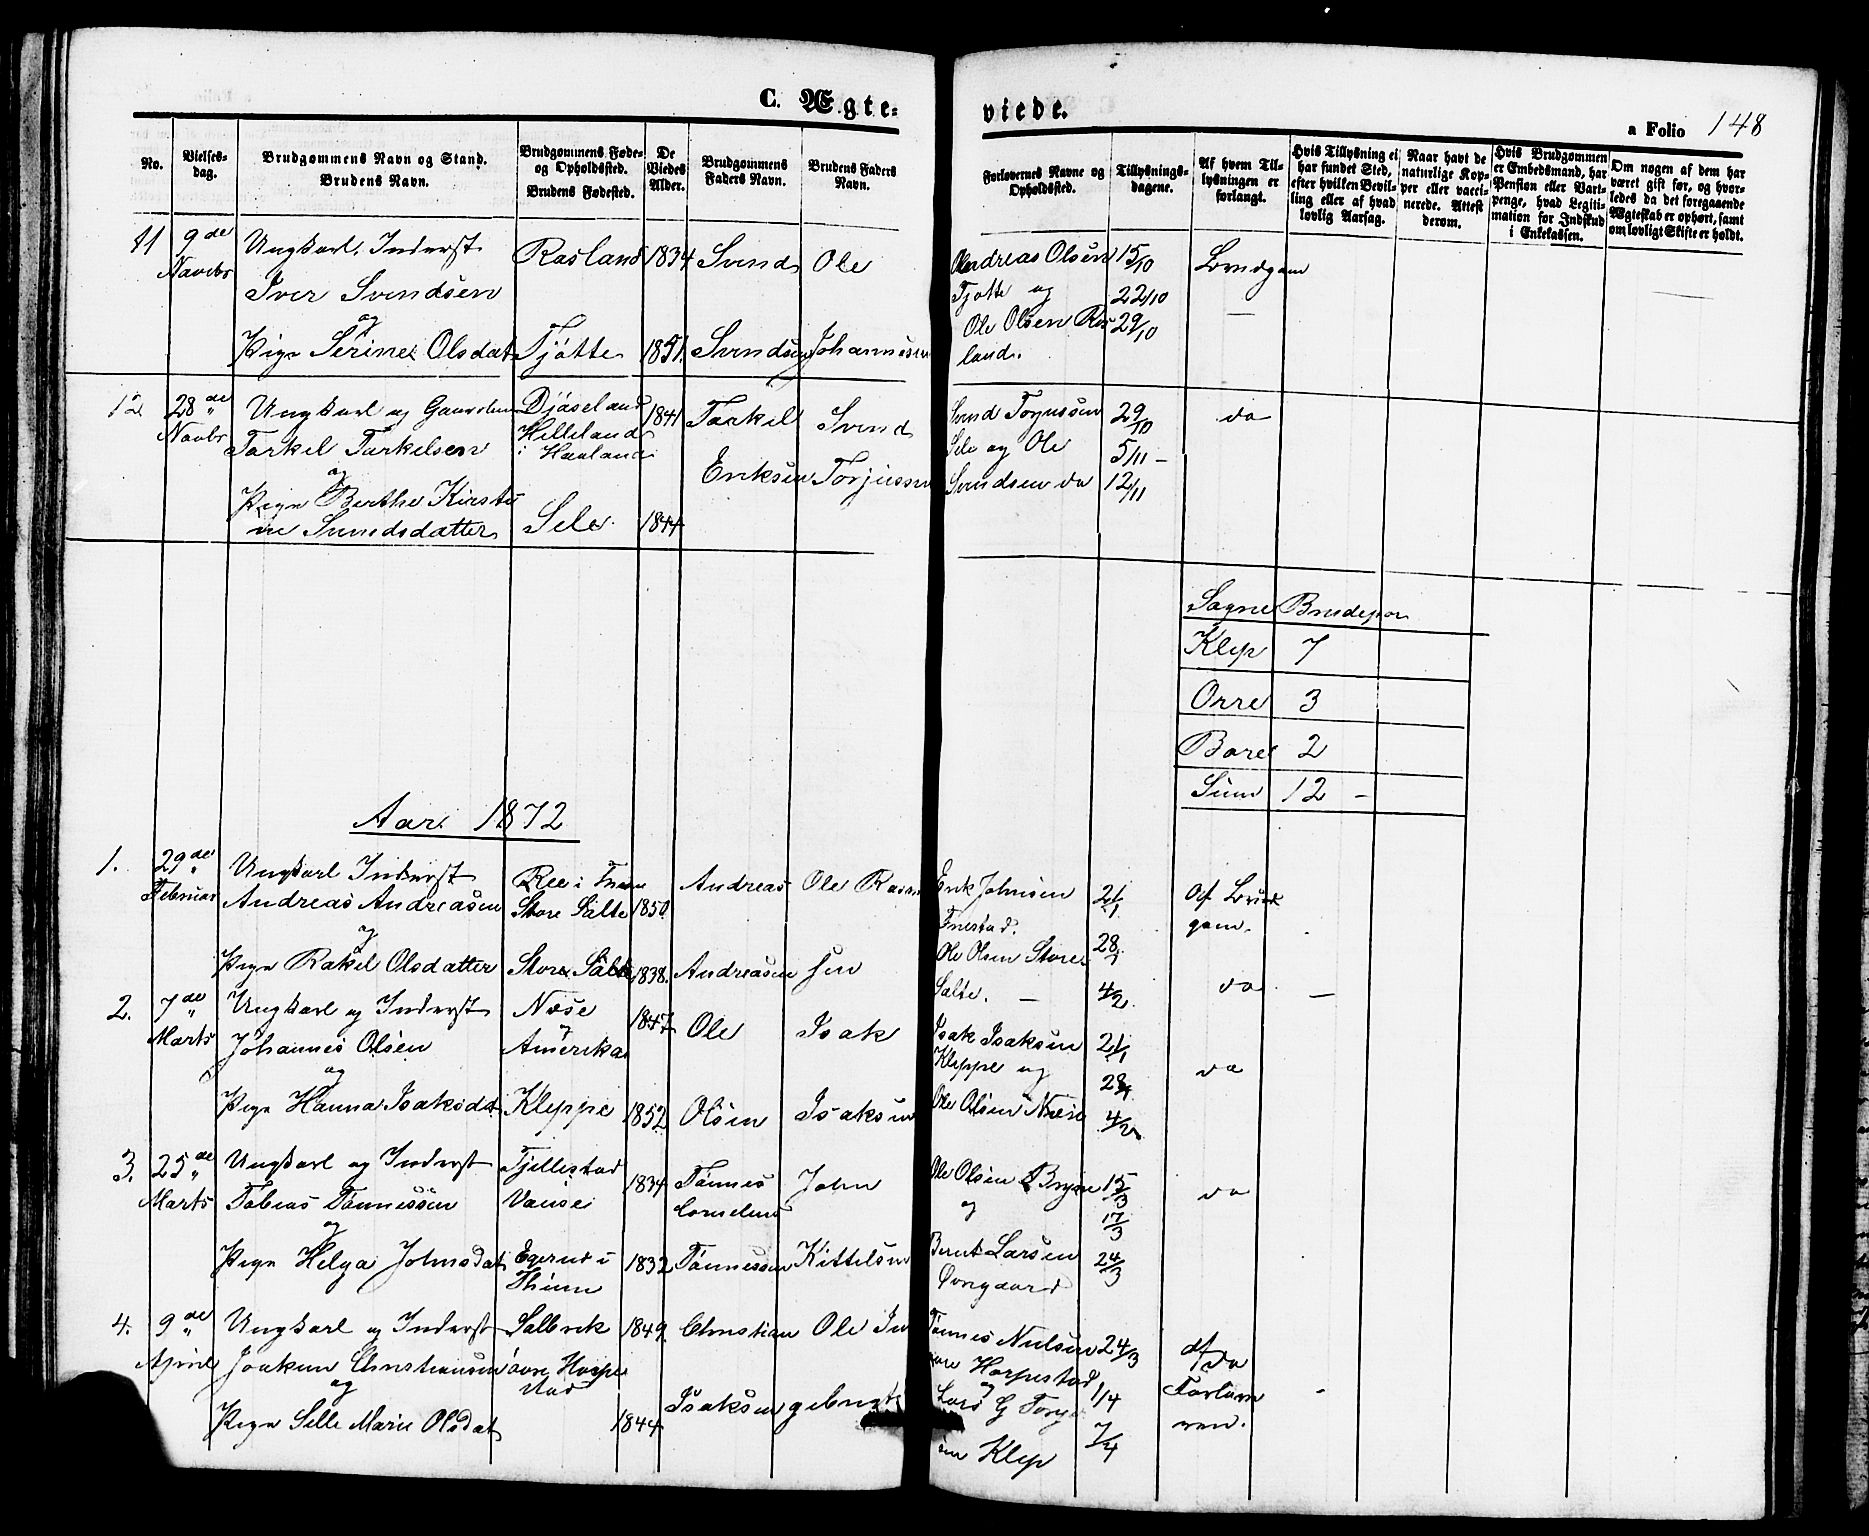 C. Ægte=
viede.
a Folio 148
No.
Vielses-
dag.
Brudgommens Navn og Stand.
Brudens Navn.
Brudgommens Føde-
og Opholdsted.
Brudens Fødested.
De
Viedes
Alder.
Brudgommens
Faders Navn.
Brudens Faders
Navn.
Forlovernes Navne og
Opholdsted.
Tillysnings-
dagene.
Af hvem Til-
lysningen er
forlangt.
Hvis Tillysning ei
har fundet Sted,
efter hvilken Bevil-
ling eller af hvad
lovlig Aarsag.
Naar havt de
naturlige Kop-
per eller vacci-
nerede. Attest
derom.
Hvis Brudgommen
er Embedsmand, har
Pension eller Vart-
penge, hvad Legiti-
mation for Indskud
i Enkekassen.
Om nogen af dem har
været gift før, og hvor-
ledes da det foregaaende
Ægteskab er ophørt, samt
om lovligt Skifte er holdt.
11 9de Ungkarl. Inderst Rasland 1834 Svend Ole Andreas Olsen 15/10
Novbr Iver Svendsen Tjøtte og 22/10
og Ole Olsen Ras 29/10
Pige Serine Olsdat Tjøtte 1851. Svendsen Johannesen land.
12 28de Ungkarl og Gaardm Djøseland 1841 Torkel Svend Svend Torjussen 29/10 do
Novbr Torkel Torkelsen Helleland Sele og Ole 5/11 -
og i Haaland Eriksen Torjussen Svendsen do 12/11
Pige Berthe Kirsti
ne Svendsdatter Sele 1844
Sogne Brudepar
Klep 7
Orre 3
Bore 2
Sum 12 -
Aar 1872
1. 29de Ungkarl Inderst Ree i Andreas Ole Erik Johnsen 21/1 Af Brud
Februar Andreas Andreasen Store Salte 1850 gom.
og 28/1
Pige Rakel Olsdatter Store Salte 1838. Andreasen sen Ole Olsen Store
Salte. — 4/2 do —
2. 7de Ungkarl og Inderst Næse 1847 Ole Isak Isak Isaksen 21/1
Marts Johannes Olsen Amerika Kleppe og 28/1 do
og
Pige Hanna Isaksdat Kleppe 1852 Olsen Isaksen Ole Olsen Næse 4/2
3. 25de Ungkarl og Inderst Tjellestad 1834 Tønnes John Ole Olsen Bryne do
Marts Tobias Tønnessen Vanse Cornelius og 17/3
og
Pige Helga Johnsdat Egerud i 1832 Tønnessen Kittelsen Bernt Larsen 24/3
Thime
4. 9de Ungkarl og Inderst 1849 Christian Ole Tønnes Nielsen 24/3 af
April Joakim Christiansen øvre Horpe Horpestad do
og stad og 1/4 Forlove
Isaksen Lars G ren.
Pige Selle Marie Olsdat 1844 Klep 7/4